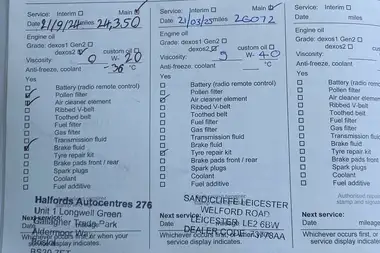 Interim Main Interim Main Interim
Date 21/9/24 miles 24,350
Engine oil
Grade: dexos1 Gen2
dexos2 custom oil
Viscosity: 0 W- 20
Anti-freeze, coolant -36 °C
Yes
Battery (radio remote control)
Pollen filter
Air cleaner element
Ribbed V-belt
Toothed belt
Fuel filter
Gas filter
Transmission fluid
Brake fluid
Tyre repair kit
Brake pads front / rear
Spark plugs
Coolant
Fuel additive
Halfords Autocentres 276
Unit 1 Longwell Green
Gallagher Trade Park
Aldermoor Way
Bristol
BS30 7ET
Next service:
Date
Whichever occurs first or when your
service display indicates.
Date 21/03/25 miles 26072
Engine oil
Grade: dexos1 Gen2
dexos2 custom oil
Viscosity: W- 40
Anti-freeze, coolant °C
Yes
Battery (radio remote control)
Pollen filter
Air cleaner element
Ribbed V-belt
Toothed belt
Fuel filter
Gas filter
Transmission fluid
Brake fluid
Tyre repair kit
Brake pads front / rear
Spark plugs
Coolant
Fuel additive
SANDICLIFFE LEICESTER
WELFORD ROAD
LEICESTER LE2 6BW
DEALER CODE
Next service:
Date
Whichever occurs first, or when your
service display indicates.
Date miles
Engine oil
Grade: dexos1 Gen2
dexos2 custom oil
Viscosity: W-
Anti-freeze, coolant
Yes
Battery (radio remote
Pollen filter
Air cleaner element
Ribbed V-belt
Toothed belt
Fuel filter
Gas filter
Transmission fluid
Brake fluid
Tyre repair kit
Brake pads front / rear
Spark plugs
Coolant
Fuel additive
stamp and signature
Next service:
Date mileage
Whichever occurs first, or
service display indicates.